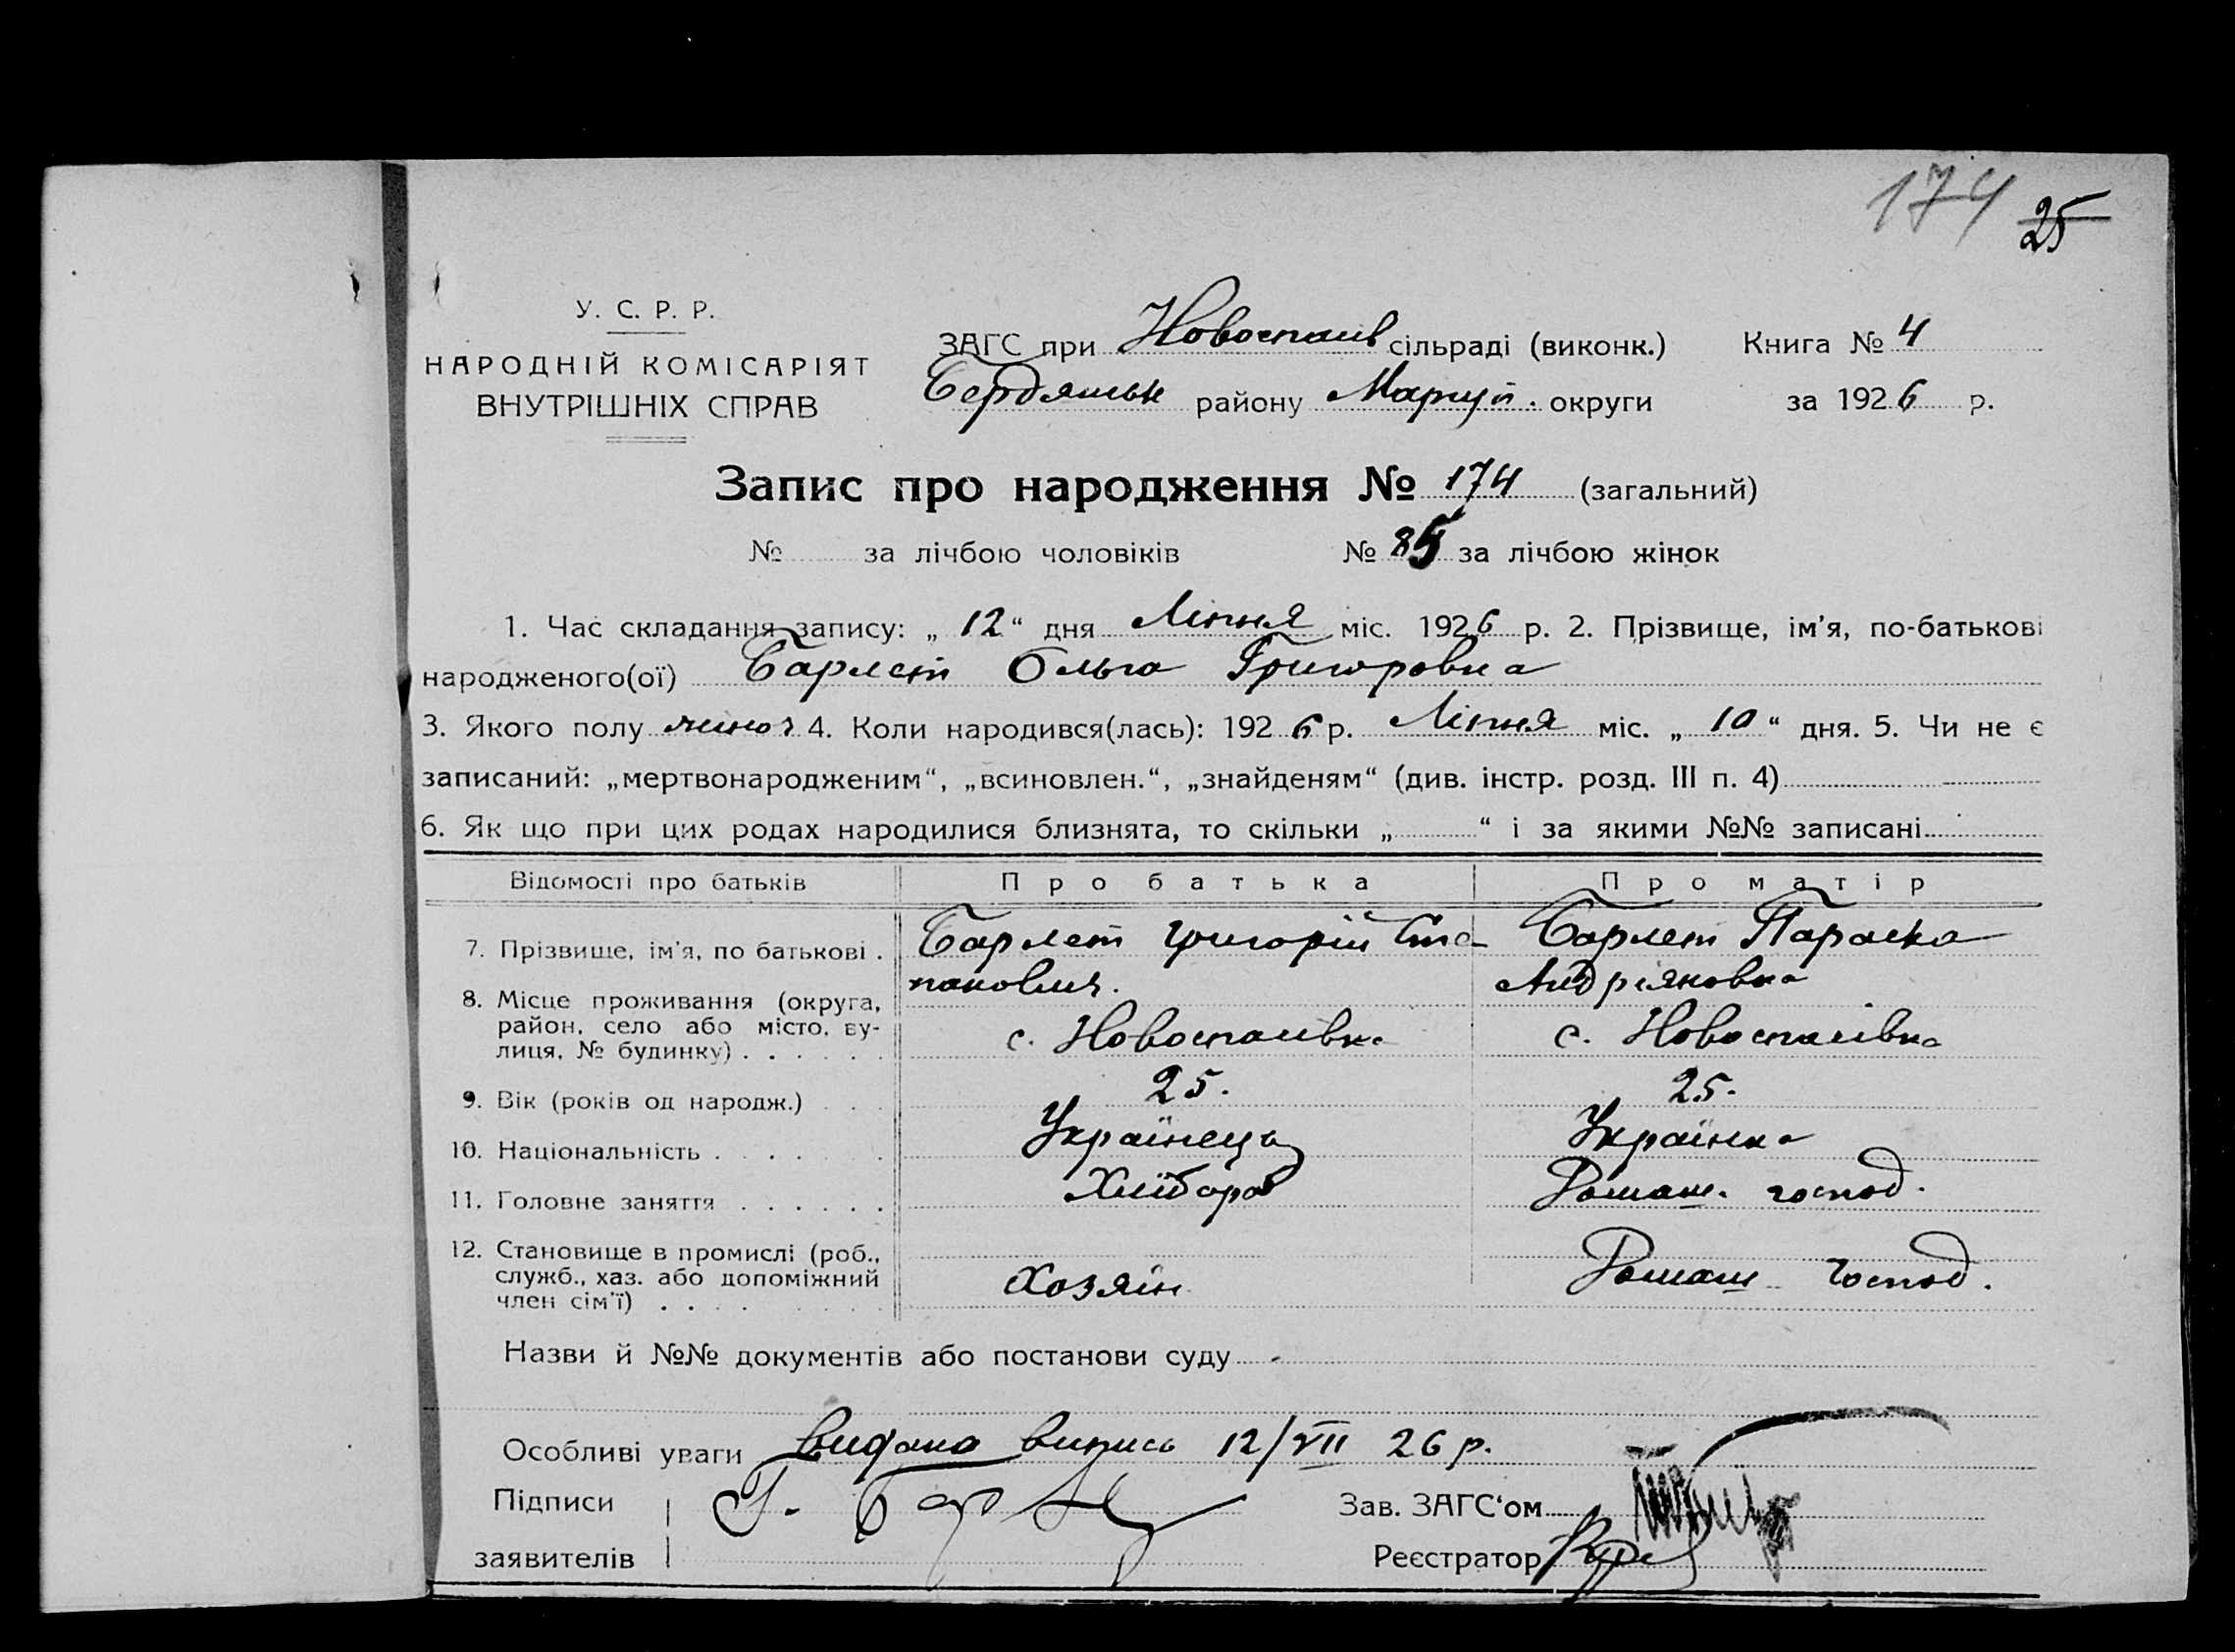 174 25
У. С. Р. Р.
НАРОДНІЙ КОМІСАРІЯТ
ВНУТРІШНІХ СПРАВ
ЗАГС при Новоспасів сільраді (виконк.) Книга № 4
Бердянськ району Маріуп. округи за 1926 р.
Запис про народження № 174 (загальний)
№ за лічбою чоловіків № 85 за лічбою жінок
1. Час складання запису: „ 12 “ дня Ліпня міс. 1926 р. 2. Прізвище, ім'я, по-батькові
народженого(ої) Барлет Ольга Григоровна
3. Якого полу жіноч 4. Коли народився(лась): 1926 р. Ліпня міс. „ 10 “ дня. 5. Чи не є
записаний: „мертвонародженим“, „всиновлен.“, „знайденям“ (див. інстр. розд. III п. 4)
6. Як що при цих родах народилися близнята, то скільки „ “ і за якими №№ записані
Відомості про батьків Про батька Про матір
7. Прізвище, ім'я, по батькові . Барлет Григорій Сте- Барлет Параска
панович. Андріяновна
8. Місце проживання (округа,
район, село або місто, ву-
лиця, № будинку) . . . . . . с. Новоспасівка с. Новоспасівка
9. Вік (років од народж.) . . . 25. 25.
10. Національність . . . . . Українець Українка
11. Головне заняття . . . . . . Хлібороб Домаш. господ.
12. Становище в промислі (роб.,
служб., хаз. або допоміжний
член сім'ї) . . . . Хозяїн Домаш господ.
Назви й №№ документів або постанови суду
Особливі уваги Видана випись 12/VII 26 р.
Підписи Г. Бар Зав. ЗАГС'ом
заявителів Реєстратор